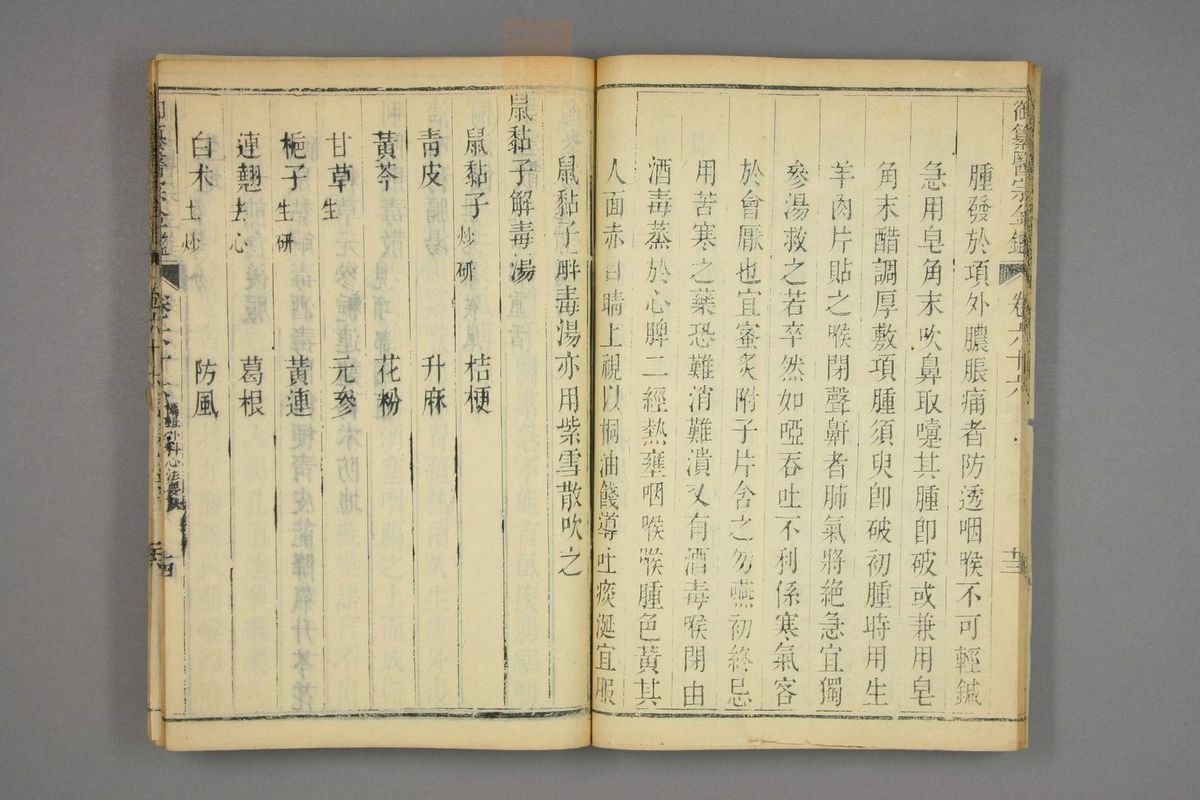 御纂醫宗金鑑 卷六十六 十三
腫發於項外膿脹痛者防透咽喉不可輕鍼
急用皂角末吹鼻取嚏其腫卽破或兼用皂
角末醋調厚敷項腫須臾卽破初腫時用生
羊肉片貼之喉閉聲鼾者肺氣將絕急宜獨
參湯救之若卒然如啞吞吐不利係寒氣客
於會厭也宜蜜炙附子片含之勿嚥初終忌
用苦寒之藥恐難消難潰又有酒毒喉閉由
酒毒蒸於心脾二經熱壅咽喉喉腫色黃其
人面赤目睛上視以桐油餞導吐痰涎宜服
鼠黏子解毒湯亦用紫雪散吹之
鼠黏子解毒湯
鼠黏子炒研 桔梗
靑皮 升麻
黃芩 花粉
甘草生 元參
梔子生研 黃連
連翹去心 葛根
白朮土炒 防風
御纂醫宗金鑑 卷六十六 編輯外科心法要訣 十四